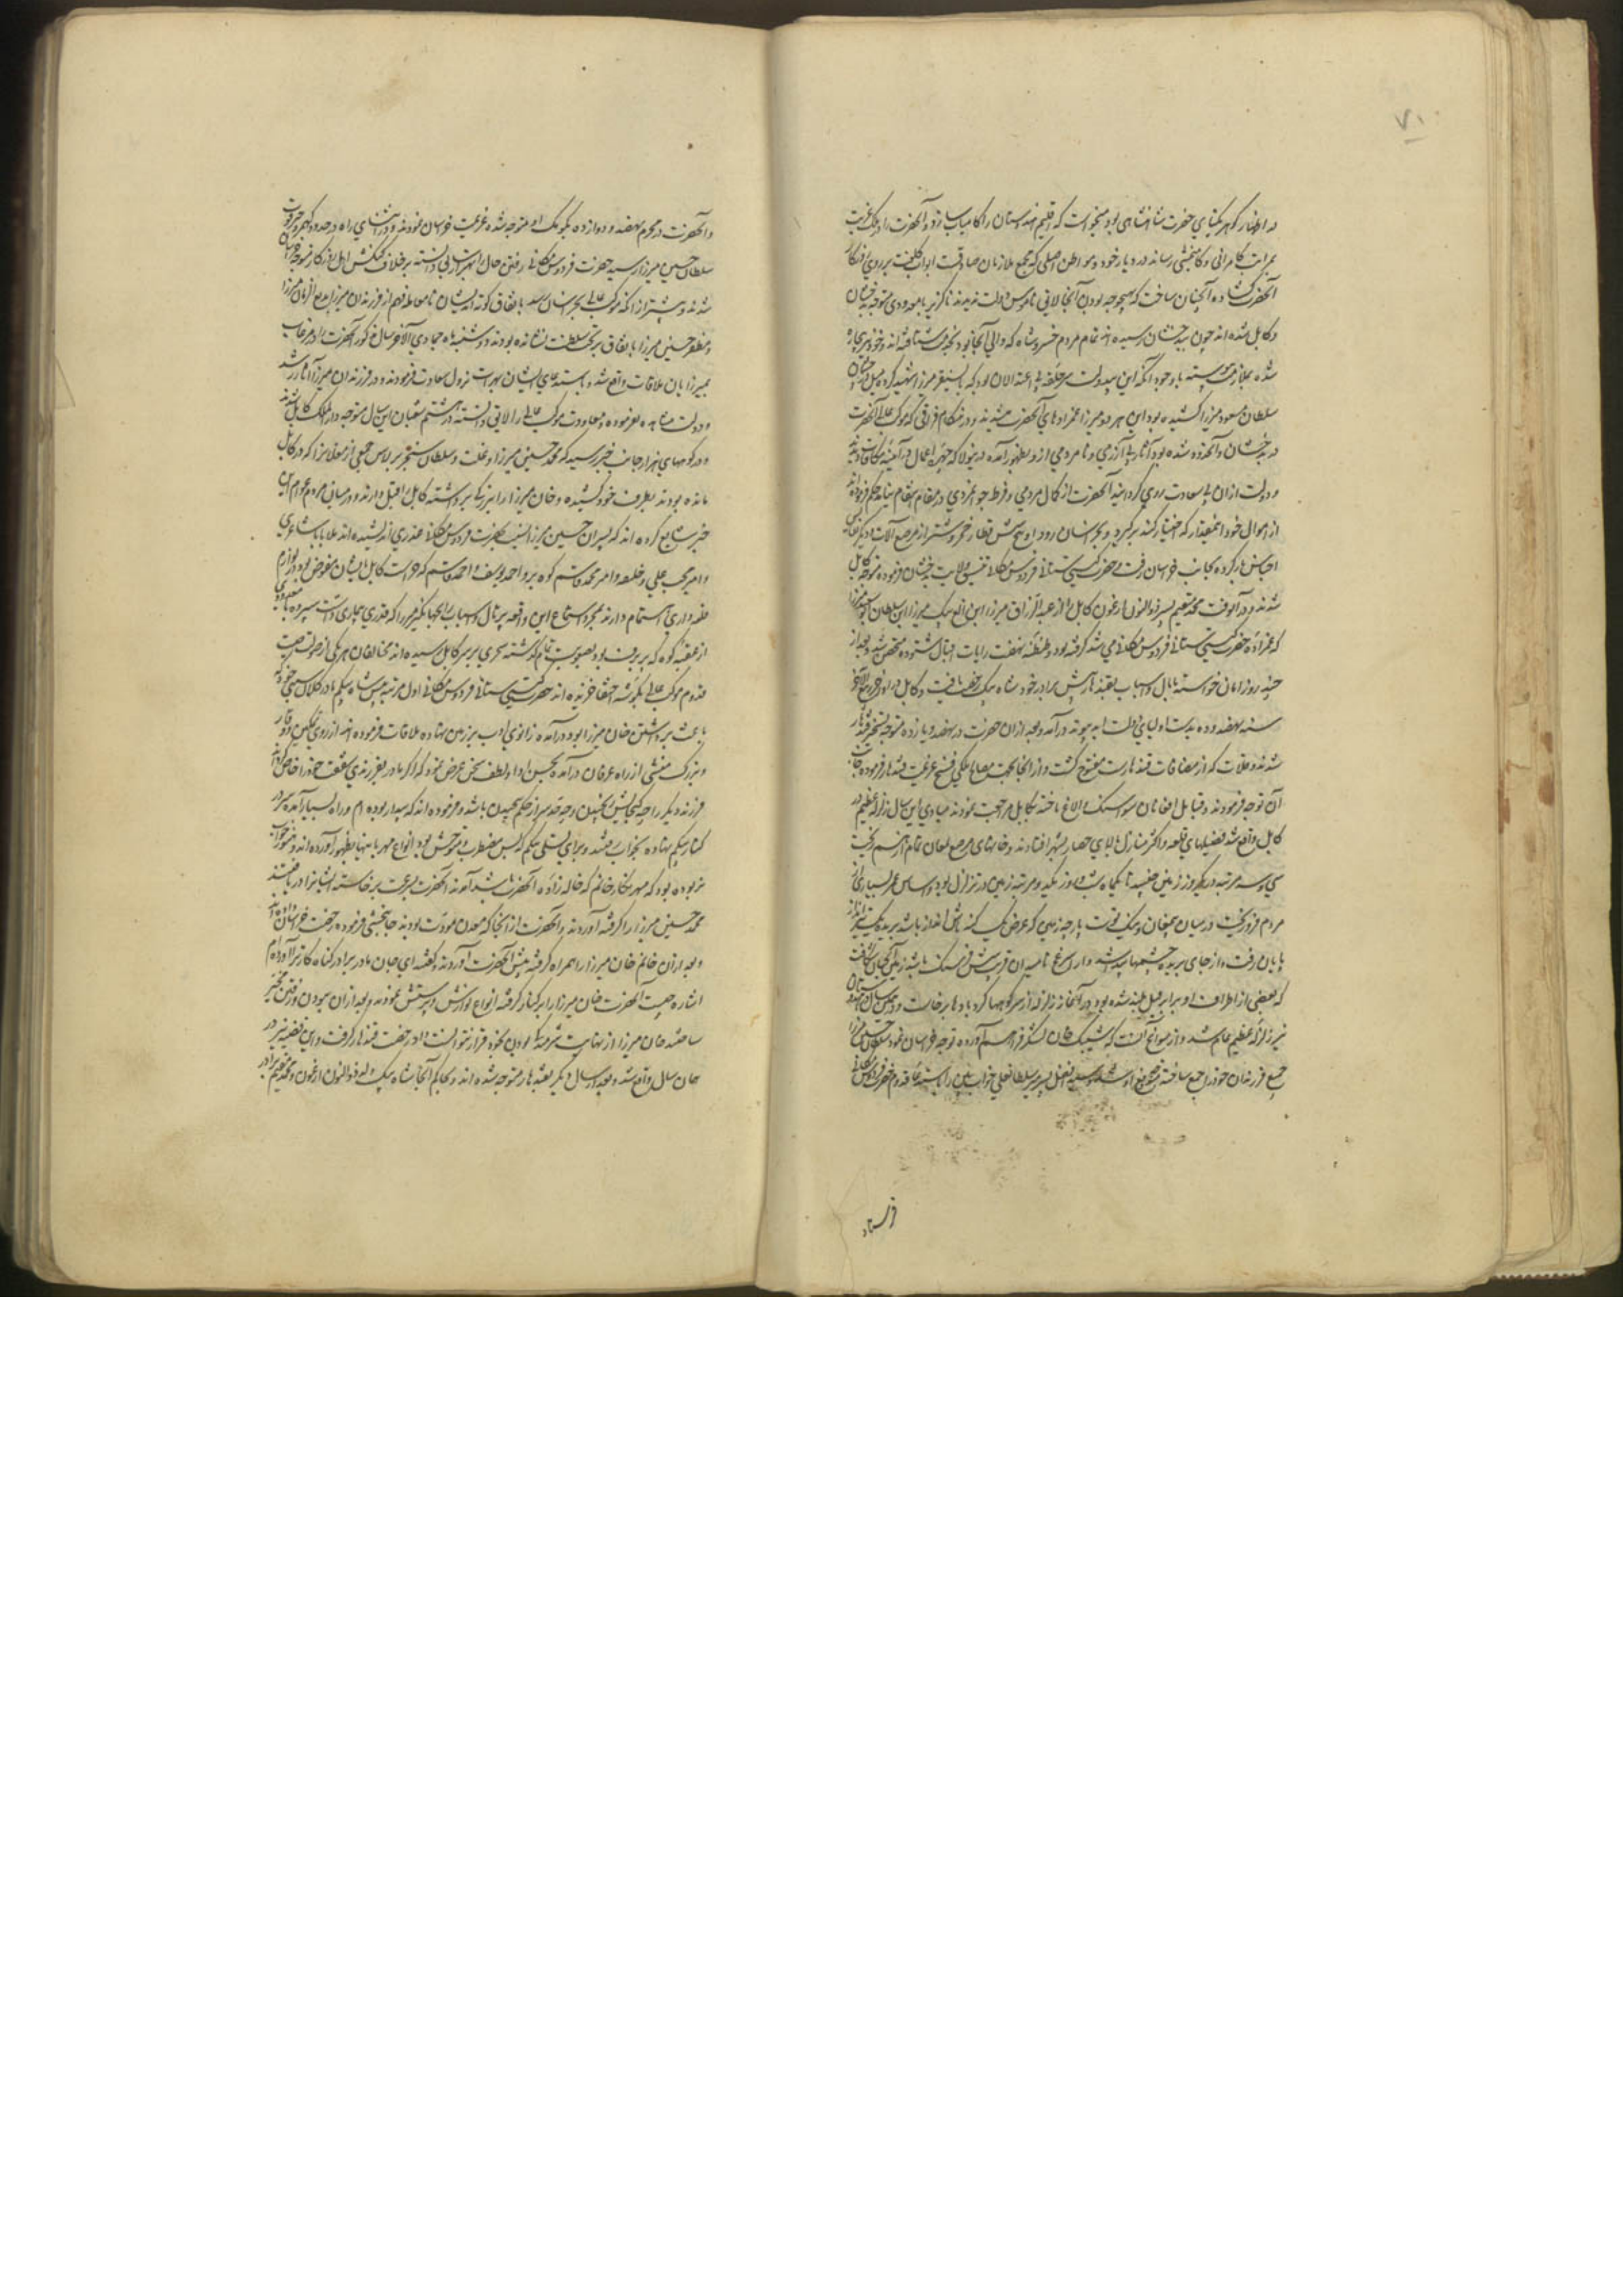 ۷۱
در اظهار گوهر یکتای حضرت شاهنشاهی بود میخواست که اقلیم هندوستان را کامیاب سازد و آنحضرت را در ملک غربت
بمراتب کامرانی و کامبخشی رساند در دیار خود و مواطن اصلی که مجمع ملازمان صداقت ابواب کلفت بر روی روزگار
آنحضرت گشاده آنچنان ساخت که بهیچوجه بودن آنجا لایق ناموس دولت ندیدند ناگزیر با معدودی متوجه بدخشان
و کابل شده‌اند چون ببدخشان رسیده‌اند تمام مردم خسروشاه که والی آنجا بود بخدمت شتافته‌اند و خود نیز بیچاره
شده بملازمت پیوسته با وجود آنکه این بیدولت سرحلقه بی‌اعتدالان بود که بایسنقر میرزا را شهید کرده میل در چشمان
سلطان مسعود میرزا کشیده بود و این هر دو میرزا عمزادهای آنحضرت میشدند و در هنگام فترات که موکب عالی آنحضرت
در بدخشان
و دولت از آن بی‌سعادت روی گردانید آنحضرت از کمال مردمی و فرط جوانمردی در مقام انتقام نیامده حکم فرمودند
از اموال خود آنمقدار که اختیار کند برگیرد و بخراسان رود او پنج شش قطار خچر و شتر از مرصع آلات و دیگر نفایس
اجناس بار کرده بجانب خراسان رفت و حضرت گیتی ستانی فردوس مکانی تنسیق ولایت بدخشان فرموده متوجه کابل
شدند و در آنوقت محمد مقیم پسر ذوالنون ارغون کابل را از عبدالرزاق میرزا ابن الغ بیک میرزا ابن سلطان ابوسعید میرزا
که عمزاده حضرت گیتی ستانی فردوس مکانی می‌شد گرفته بود و طنطنه نهضت رایات اقبال شنوده متحصن شد و بعد از
چند روز امان خواسته با مال و اسباب بقندهار پیش برادر خود شاه بیک رخصت یافت و کابل در اواخر ربیع‌الآخر
سنه نهصد و ده بدست اولیای دولت ابد پیوند درآمد و بعد از آن حضرت در نهصد و یازده متوجه تسخیر قندهار
شدند و قلات که از مضافات قندهارست مفتوح گشت و از آنجا بجهت مصالح ملکی فسخ عزیمت قندهار فرموده بجانب
آن توجه فرمودند و قبایل افغانان سواسنگ و الاتاغ تاخته بکابل مراجعت نمودند مبادی این سال زلزله عظیم در
کابل واقع شد فصیلهای قلعه و اکثر منازل بالای حصار و شهر افتادند و خانهای موضع لمغان تمام از هم ریخت
سی و سه مرتبه در یکروز زمین جنبید تا یکماه شب و روز یک دو مرتبه زمین در تزلزل بود و اساس عمر بسیاری از
مردم فرو ریخت و در میان پمغان و بیک توت پارچه زمینی که عرض یک کته باش انداز باشد بریده یک تیر انداز
پایان رفت و از جای بریده چشمها پیدا شد و از استرغچ تا میدان قریب شش فرسنگ باشد زمین آنچنان شکافت
که بعضی از اطراف او برابر فیل بلند شده بود در آغاز زلزله از سر کوهها گرد بادها برخاست و درهمین سال در هندوستان
نیز زلزله عظیم عام شد و از سوانح آنست که شیبک خان لشکر فراهم آورده توجه خراسان نمود سلطان حسین میرزا
جمیع فرزندان خود را جمع ساخته متوجه دفع او شد و سید افضل پسر میر سلطانعلی خواب بین را باستدعا قدوم حضرت فردوس مکانی
فرستاد
و آنحضرت در محرم نهصد و دوازده بکومک او متوجه شده عزیمت خراسان نمودند و در اثنای راه در حدود کهمرد خبر فوت
سلطان حسین میرزا رسید حضرت فردوس مکانی رفتن حال را بهتر از سابق دانسته برخلاف کنکش اهل روزگار متوجه خراسان
شدند و پیشتر از آنکه موکب عالی بخراسان رسد باتفاق کوته‌اندیشان نامعامله فهم از فرزندان میرزا بدیع الزمان میرزا
و مظفر حسین میرزا باتفاق بر تخت سلطنت نشانده بودند و دوشنبه هشتم ماه جمادی‌الآخر سال مذکور آنحضرت را در مرغاب
بمیرزایان ملاقات واقع شد و باستدعای ایشان بهرات نزول سعادت فرمودند و در فرزندان میرزا آثار رشد
و دولت مشاهده نفرموده و معاودت موکب عالی را لایق دانسته در هشتم شعبان این سال متوجه دارالملک کابل شدند
و در کوههای هزارجات خبر رسید که محمد حسین میرزا دوغلت و سلطان سنجر برلاس جمعی از مغلانرا که در کابل
مانده بودند بطرف خود کشیده و خان میرزا را بزرگی برداشته کابل را قبل دارند و در میان مردم عوام این
خبر شایع کرده‌اند که پسران حسین میرزا نسبت بحضرت فردوس مکانی غدری اندیشیده‌اند ملا بابا بشاغری
و امیر محب علی خلیفه و امیر محمد قاسم کوه‌بر و احمد یوسف و احمد قاسم که حراست کابل بایشان مفوض بود در لوازم
قلعه‌داری اهتمام دارند بمجرد استماع این واقعه پرتال و اسباب را بجهانگیر میرزا که قدری بیماری داشت سپرده با معدودی
از عقبه کوه که پر برف بود بصعوبت تمام گذشته سحری بر سر کابل رسیده‌اند مخالفان هر یکی از صولت صیت
قدوم موکب عالی بگوشه اختفا خزیده‌اند حضرت گیتی ستانی فردوس مکانی اول مرتبه پیش شاه بیگم مادر کلان سببی خود که
باعث برداشتن خان میرزا بود درآمده زانوی ادب بر زمین نهاده ملاقات فرموده‌اند از روی تمکین و وقار
و بزرگ منشی از راه عرفان درآمده بحسن ادا و لطف سخن عرض نمود که اگر مادر بفرزندی شفقت خود را خاص گرداند
فرزند دیگر را چه گنجایش رنجیدن و چه قدر سر از حکم پیچیدن باشد و فرموده‌اند که بیدار بوده‌ام و راه بسیار آمده سر در
کنار بیگم نهاده بخواب رفتند و برای تسلی بیگم که بس مضطرب و متوحش بود انواع مهربانیها بظهور آورده‌اند و هنوز خواب
نربوده بود که مهر نگار خانم که خاله زاده آنحضرت باشد آمدند آنحضرت بسرعت برخاسته ایشانرا دریافتند
محمد حسین میرزا را گرفته آوردند و آنحضرت از آنجا که معدن مروت بودند جانبخشی فرموده رخصت خراسان داده‌اند
و بعد از آن خانم خان میرزا را همراه گرفته پیش آنحضرت آوردند و گفتند ای جان مادر برادر گناه‌کار ترا آورده‌ام
اشاره چیست آنحضرت خان میرزا را بر کنار گرفته انواع نوازش و پرسش نمودند و بعد از آن بودن و رفتن مخیر
ساختند خان میرزا از نهایت شرمندگی بودن بخود قرار نتوانست داد رخصت قندهار گرفت و این قضیه نیز در
همان سال واقع شد و بعد از سال دیگر بقندهار متوجه شده‌اند و بحاکم آنجا شاه بیک ولد ذوالنون ارغون و محمد مقیم برادر